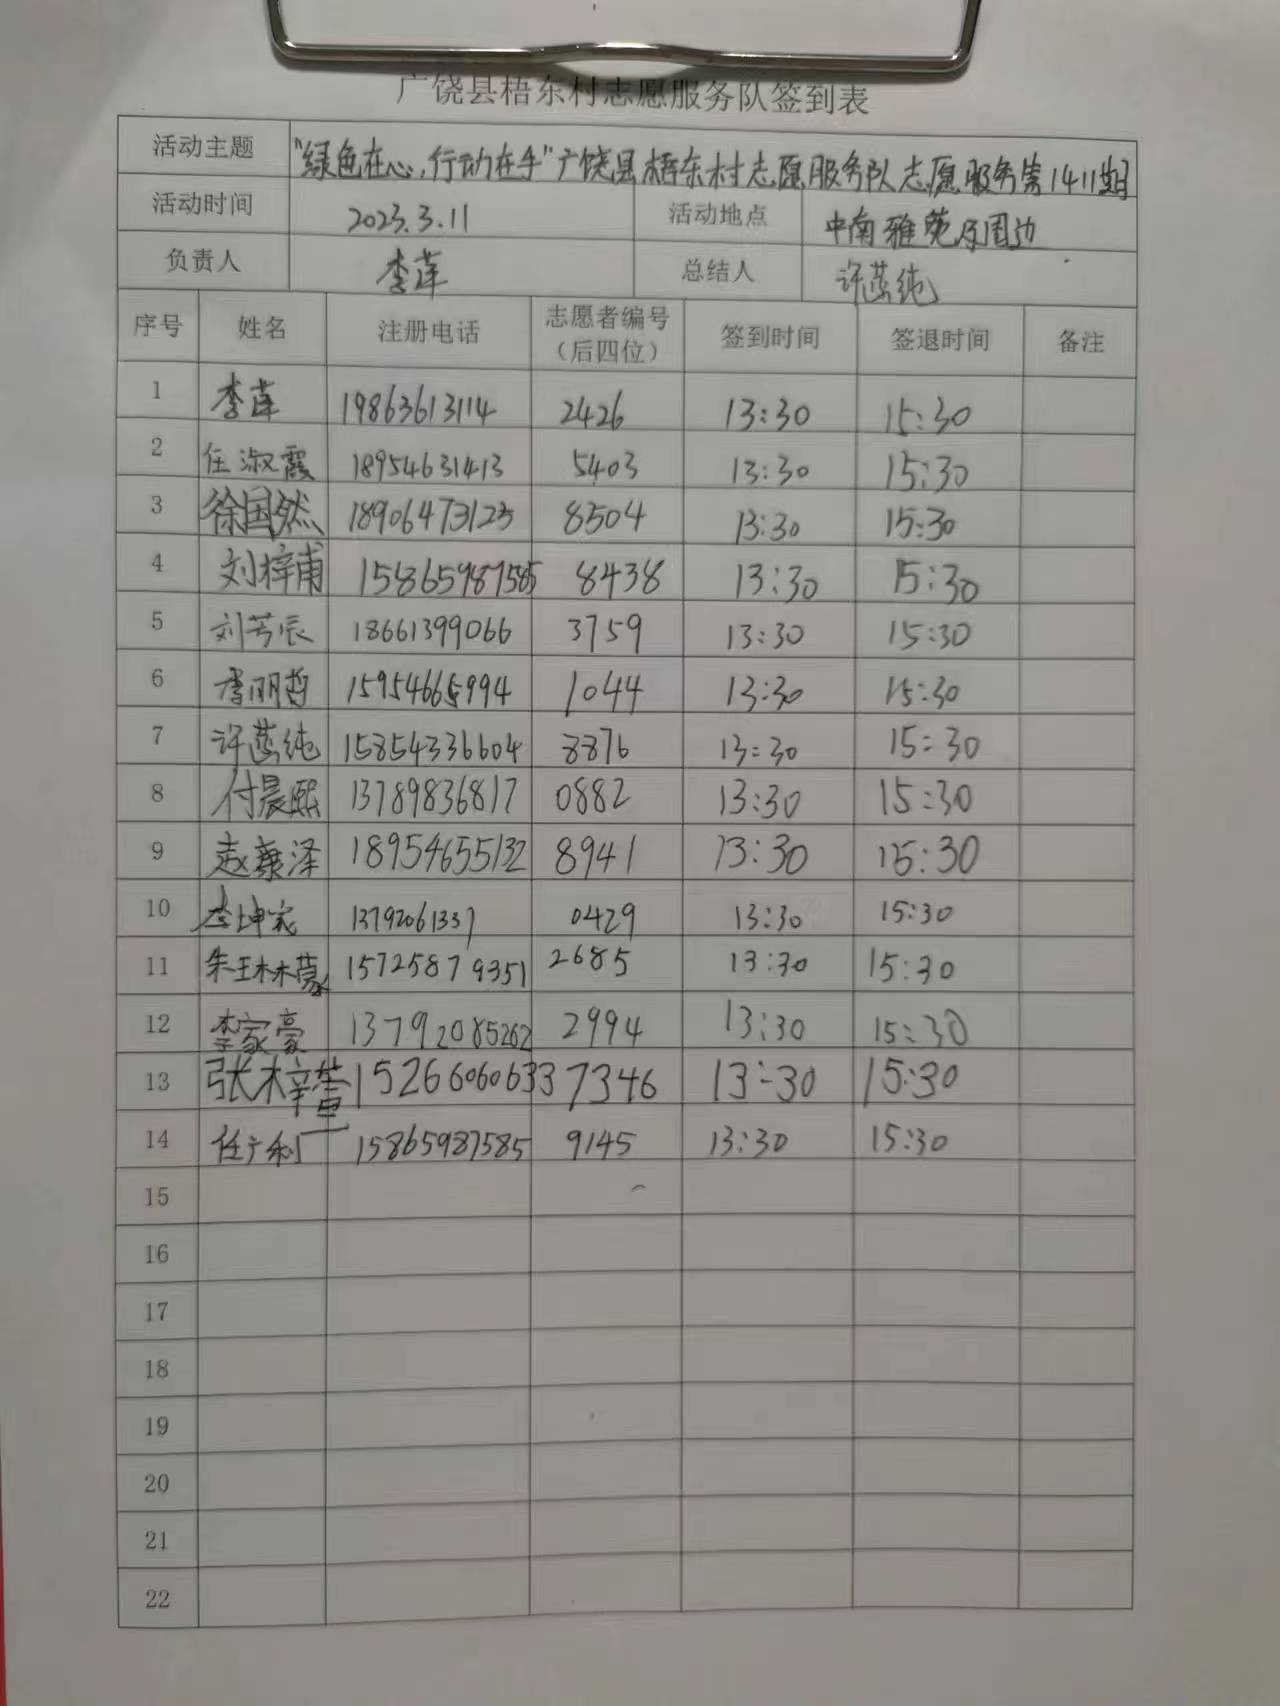 广饶县梧东村志愿服务队签到表
活动主题 “绿色在心,行动在手”广饶县梧东村志愿服务队志愿服务第1411期
活动时间 2023.3.11 活动地点 中南雅苑及周边
负责人 李莲 总结人 许燕纯
序号 姓名 注册电话 志愿者编号 签到时间 签退时间 备注
（后四位）
1 李莲 19863613114 2426 13:30 15:30
2 任淑霞 18954631413 5403 13:30 15:30
3 徐国然 18906473123 8504 13:30 15:30
4 刘梓甫 15865987585 8438 13:30 15:30
5 刘芳辰 18661399066 3759 13:30 15:30
6 李明哲 15954665994 1044 13:30 15:30
7 许燕纯 15854336604 8876 13:30 15:30
8 付晨熙 13789836817 0882 13:30 15:30
9 赵康泽 18954655132 8941 13:30 15:30
10 李坤宸 13792061337 0429 13:30 15:30
11 朱琳蒙 15725879351 2685 13:30 15:30
12 李家豪 13792085262 2994 13:30 15:30
13 张梓萱 15266060633 7346 13:30 15:30
14 任广利 15865987585 9145 13:30 15:30
15
16
17
18
19
20
21
22